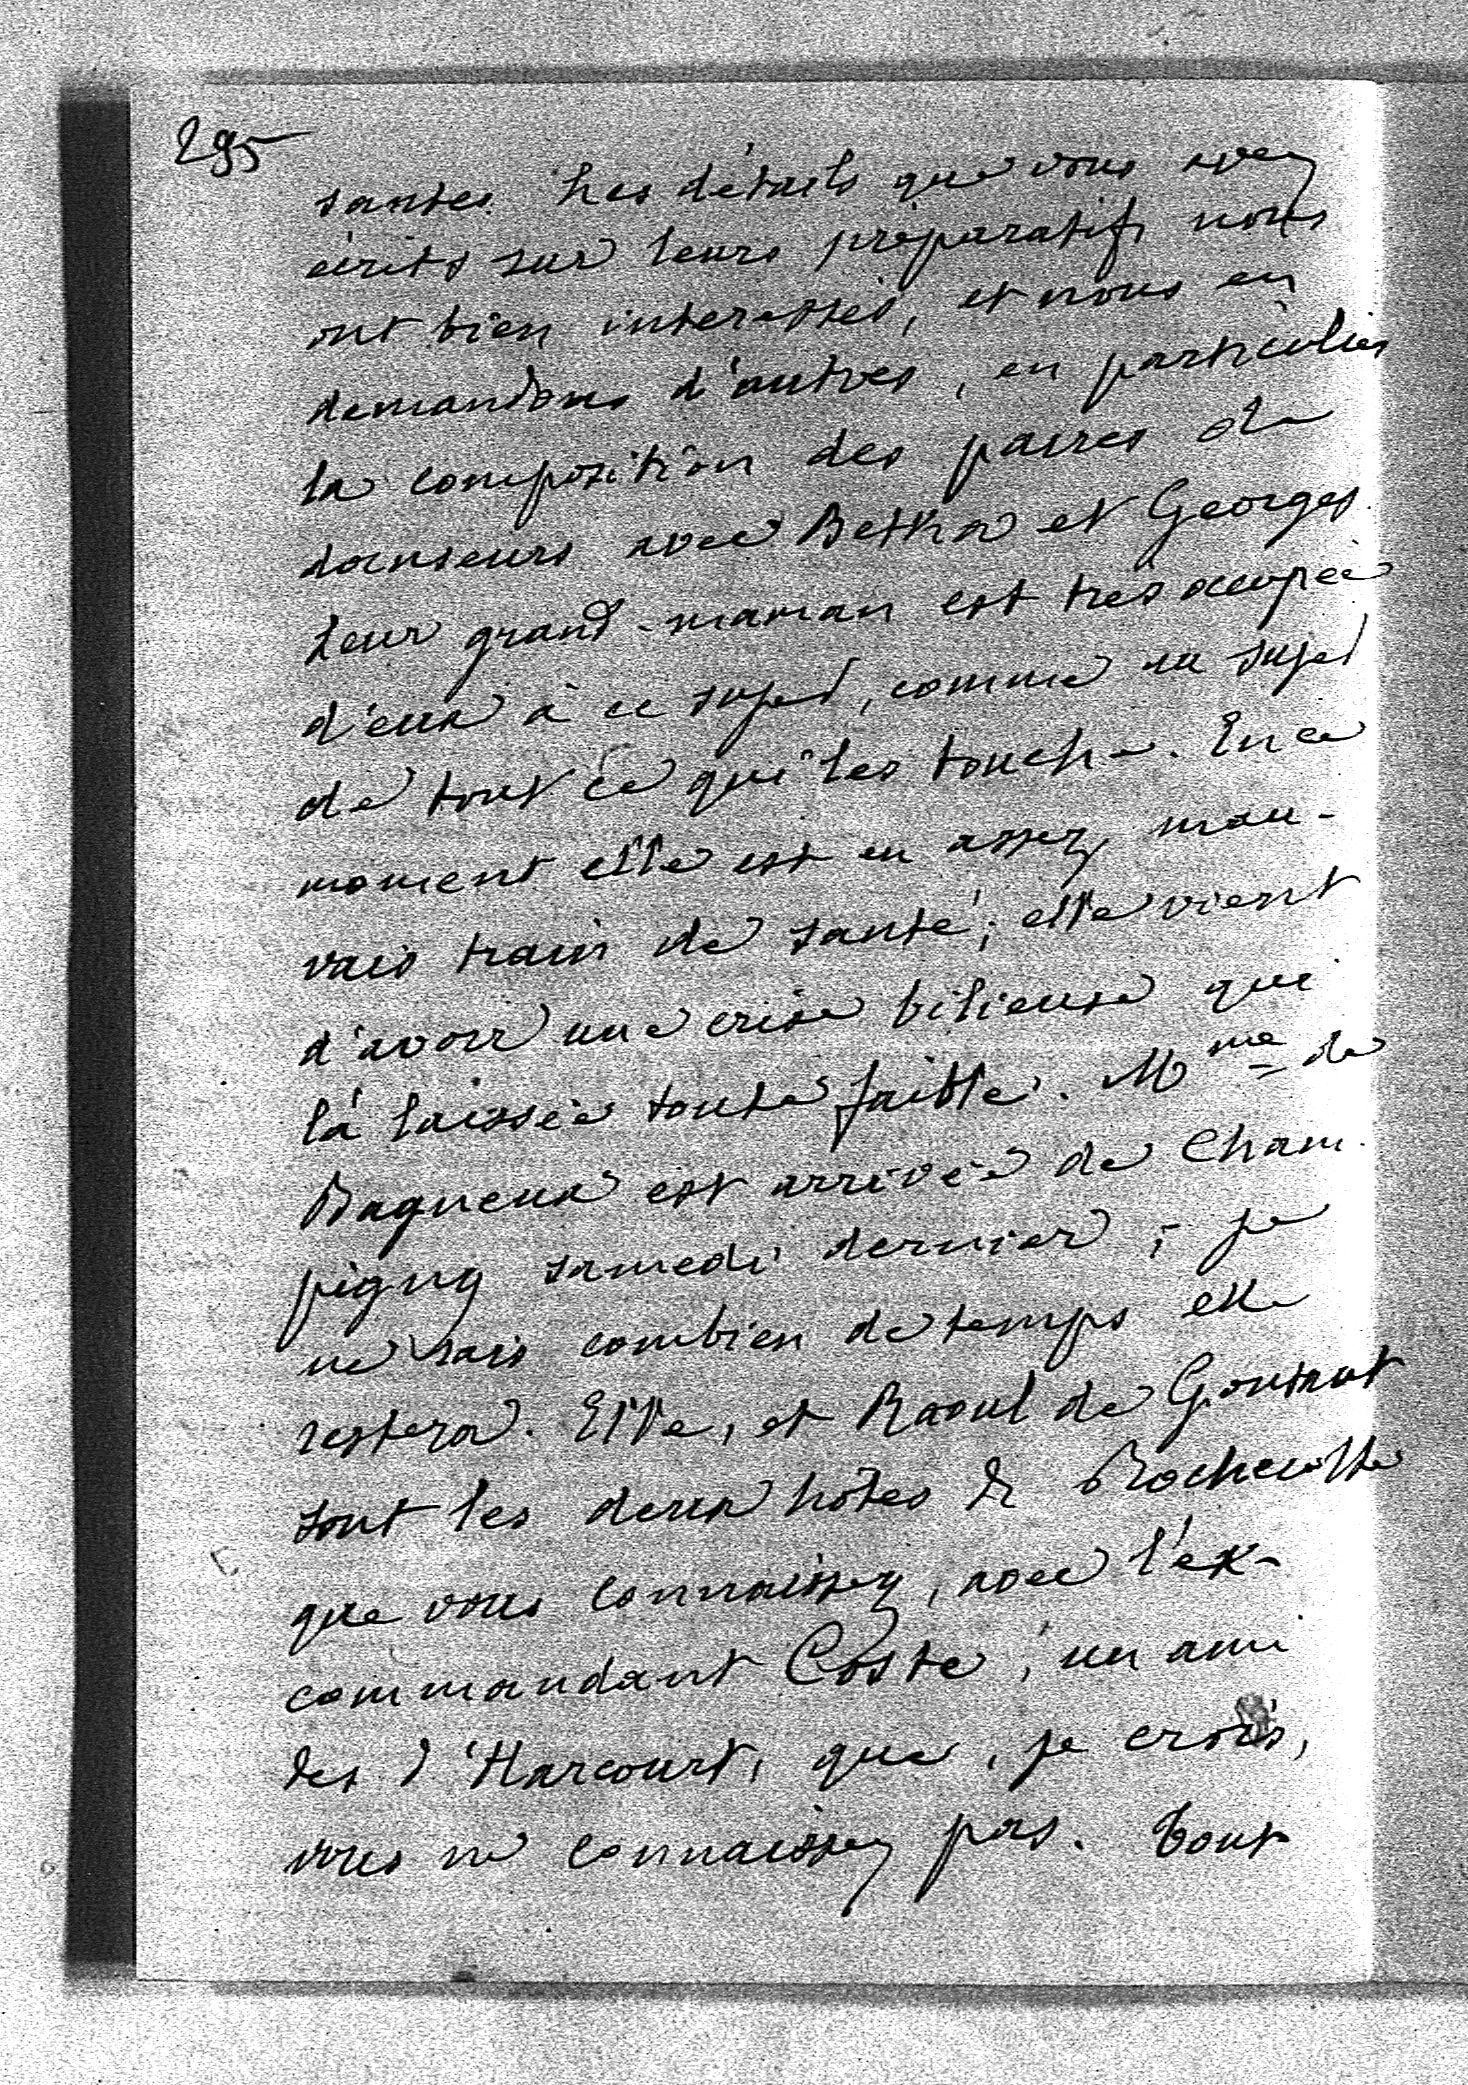 295
santes. Les détails que vous avez
écrits sur leurs préparatifs nous
ont bien interessés, et nous en
demandons d'autres, en particulier
la composition des paires de
danseurs avec Betka et Georges.
Leur grand-maman est très occupée
d'eux à ce sujet, comme au sujet
de tout ce qui les touche. En ce
moment elle est en assez mau-
vais train de santé; elle vient
d'avoir une crise bilieuse qui
l'a laissée toute faible. Mme de
Bagneux est arrivée de Cham-
pigny samedi dernier; je
ne sais combien de temps elle
restera. Elle, et Raoul de Gontaut
sont les deux hôtes de Rochecotte
que vous connaissez, avec l'ex-
commandant Coste, un ami
des d'Harcourt, que, je crois,
vous ne connaissez pas. Tout